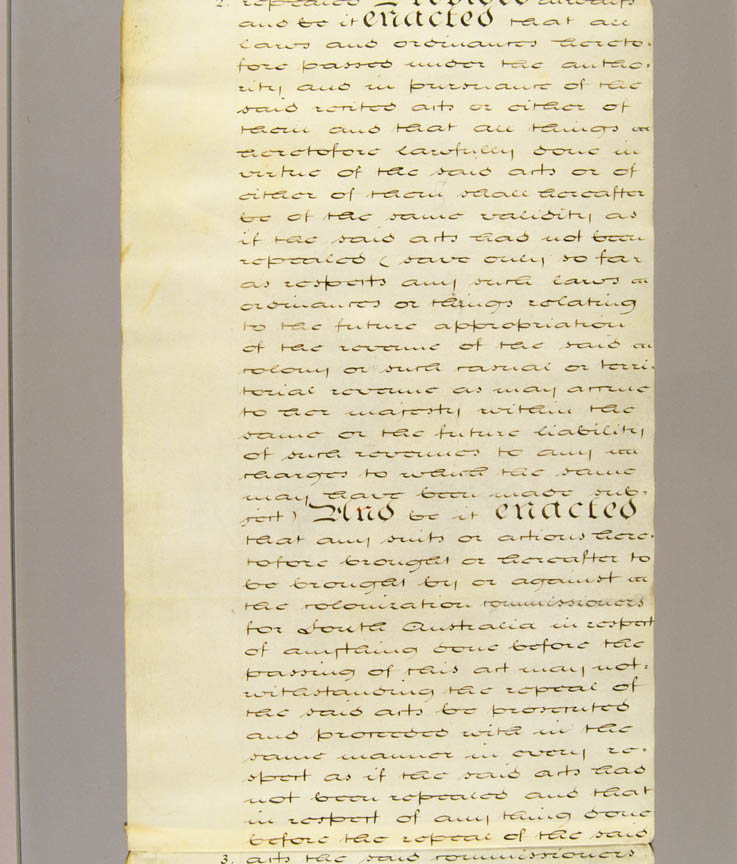 2. repealed Provided always
and be it enacted that all
laws and ordinances hereto-
fore passed under the autho-
rity and in pursuance of the
said recited acts or either of
them and that all things
heretofore lawfully done in
virtue of the said acts or of
either of them shall hereafter
be of the same validity as
if the said acts had not been
repealed (save only so far
as respects any such laws
ordinances or things relating
to the future appropriation
of the revenue of the said
colony or such casual or terri-
torial revenue as may accrue
to her majesty within the
same or the future liability
of such revenues to any
charges to which the same
may have been made sub-
ject) And be it enacted
that any suits or actions here-
tofore brought or hereafter to
be brought by or against
the colonization commissioners
for South Australia in respect
of anything done before the
passing of this act may not-
withstanding the repeal of
the said acts be prosecuted
and proceeded with in the
same manner in every re-
spect as if the said acts had
not been repealed and that
in respect of any thing done
before the repeal of the said
3. acts the said commissioners